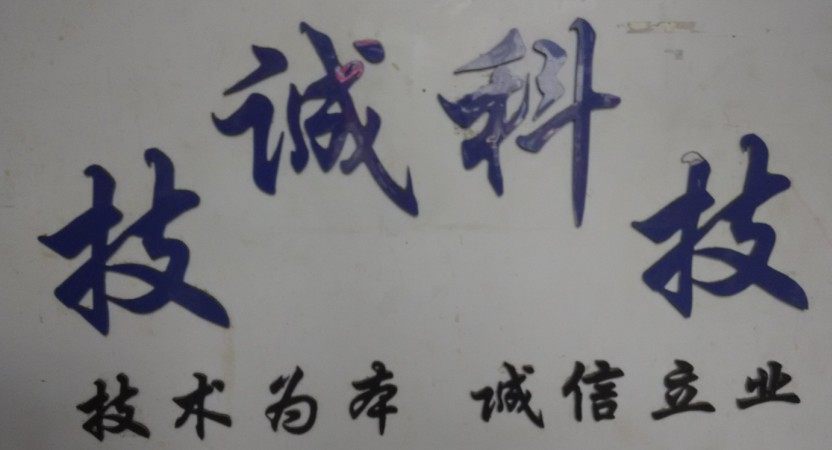 技诚科技
技术为本 诚信立业